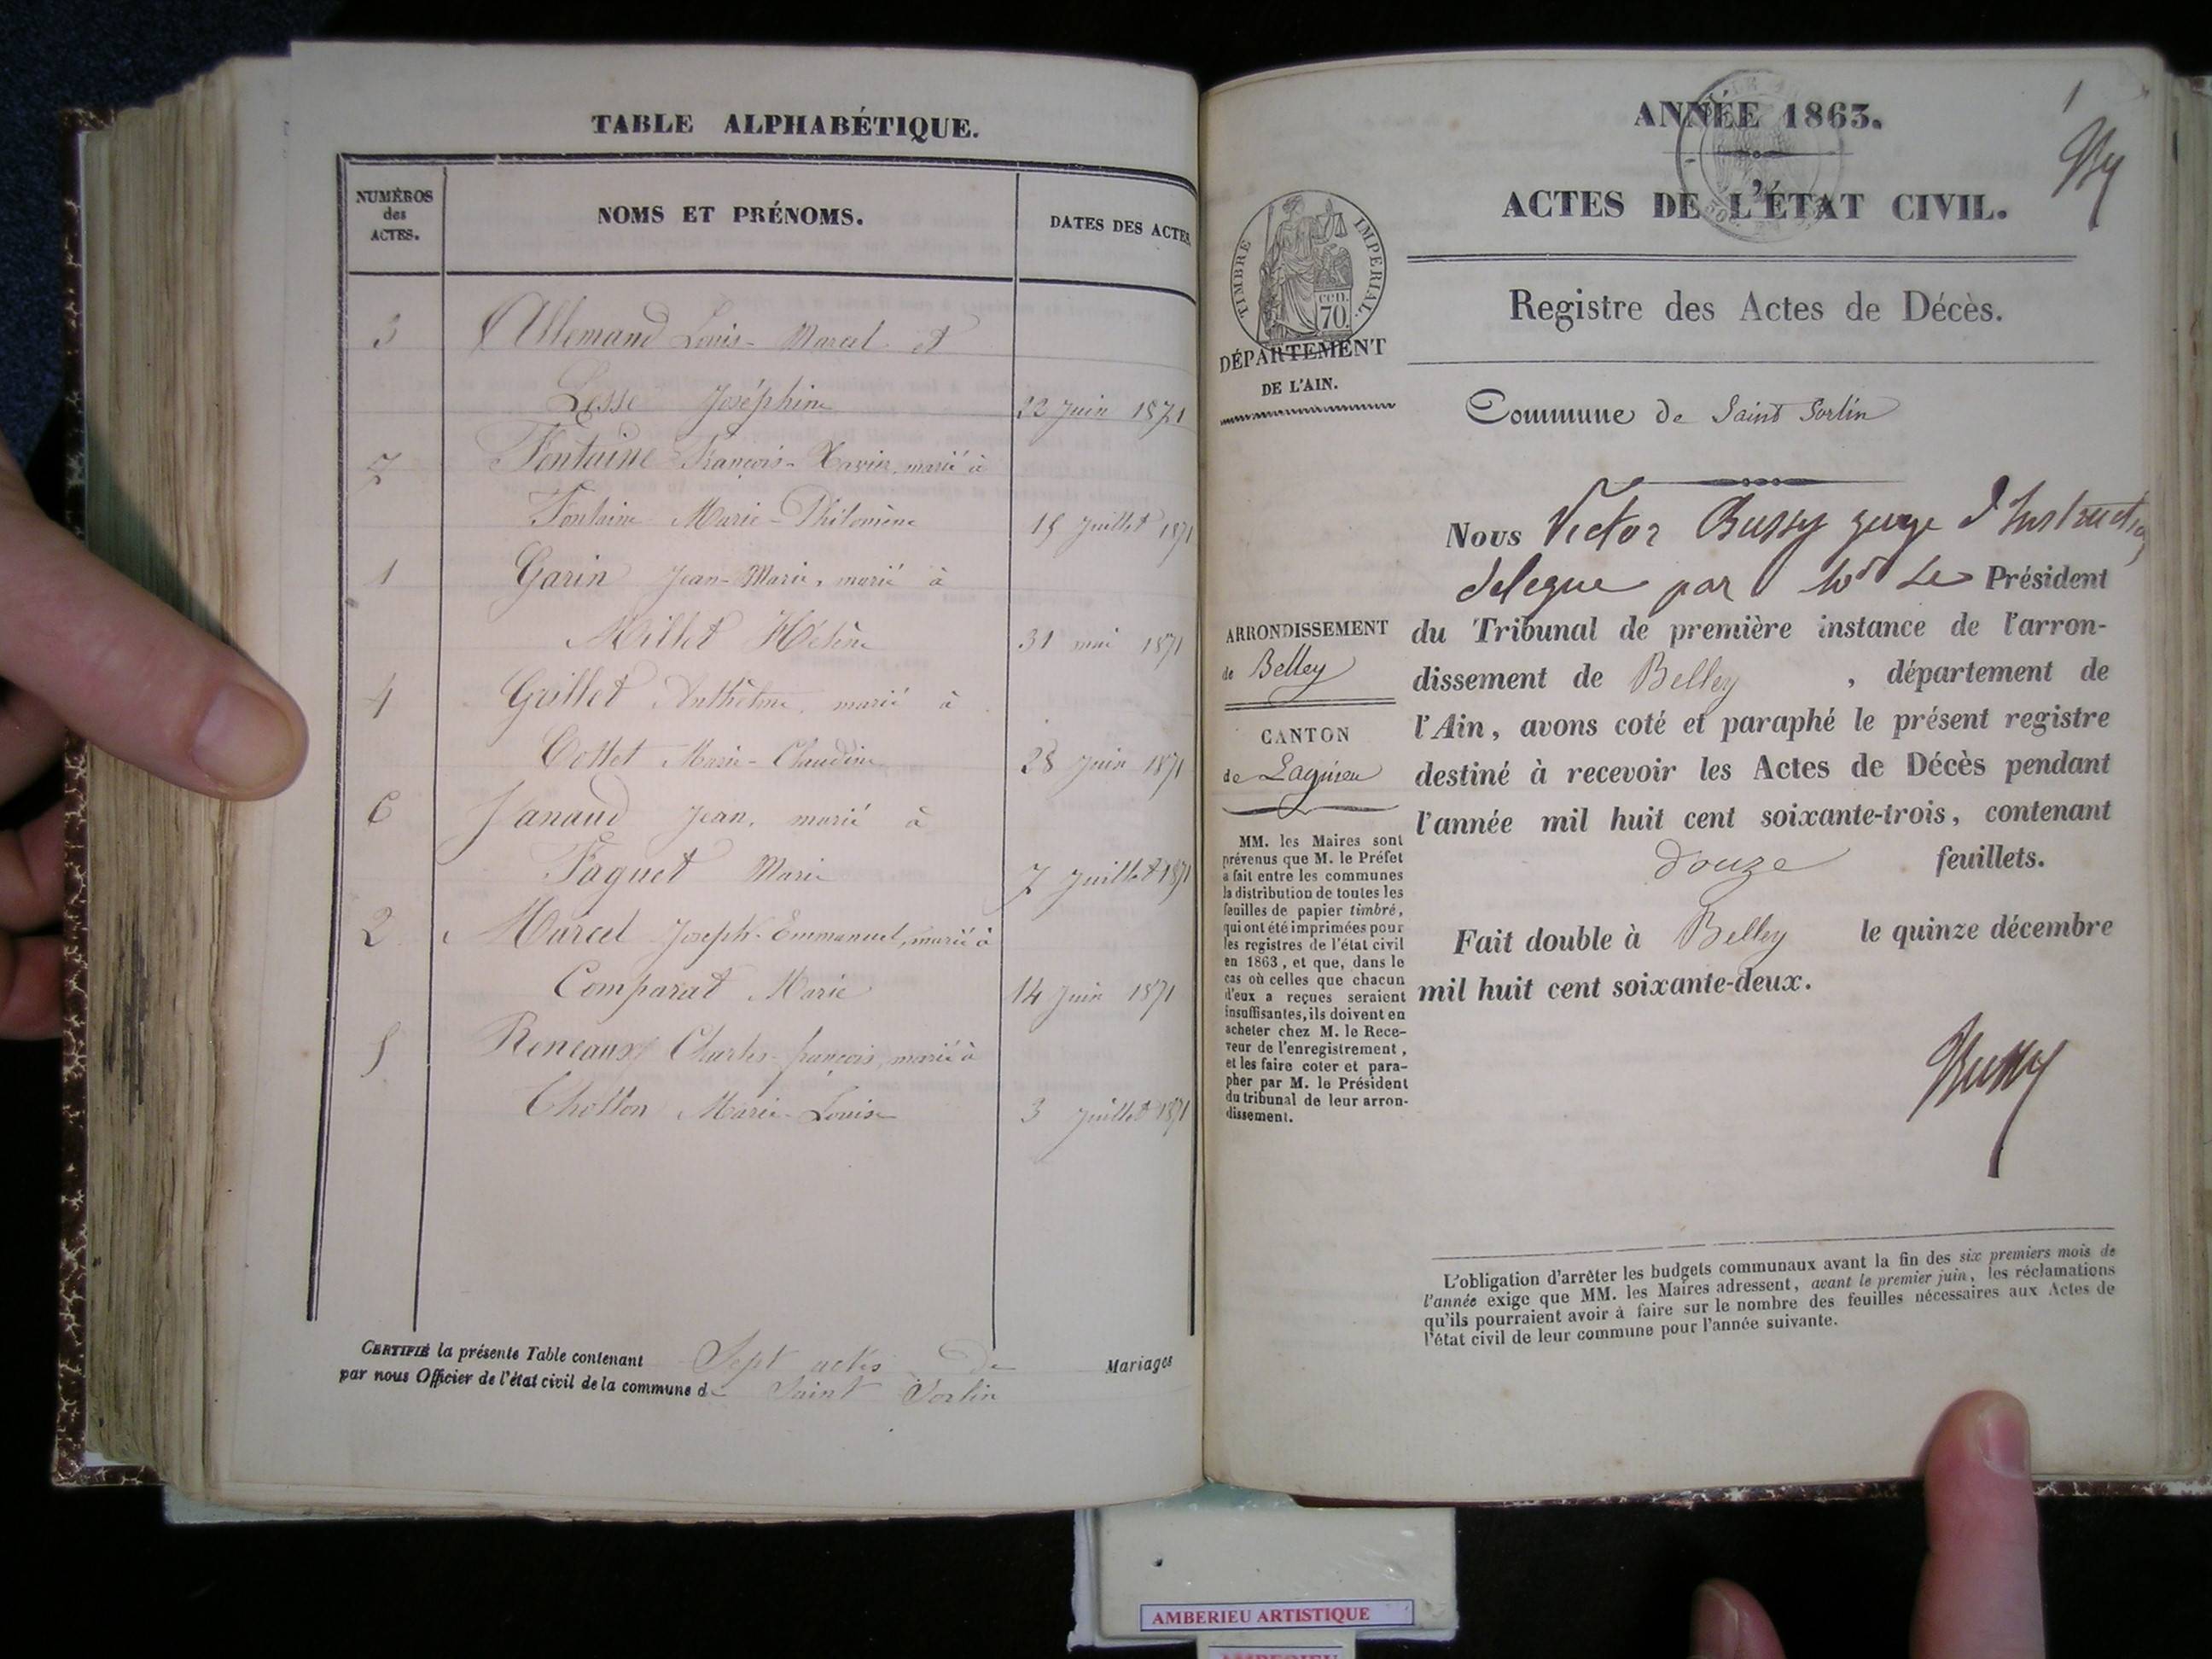 TABLE ALPHABÉTIQUE.
NUMÉROS
des
ACTES.
NOMS ET PRÉNOMS.
DATES DES ACTES
3 Allemand Louis-Marcel et
Lesse Joséphine 22 Juin 1871
7 Fontaine François-Xavier, marié à
Fontaine Marie-Philomène 15 Juillet 1871
1 Garin Jean-Marie, marié à
Millet Hélène 31 mai 1871
4 Grillet Anthelme, marié à
Cottet Marie-Claudine 28 Juin 1871
6 Janaud Jean, marié à
Faquet Marie 7 Juillet 1871
2 Marcel Joseph-Emmanuel, marié à
Comparat Marie 14 Juin 1871
5 Reneaux Charles-françois, marié à
Chollon Marie-Louise 3 Juillet 1871
CERTIFIÉ la présente Table contenant Sept actes de Mariages
par nous Officier de l'état civil de la commune de Saint Sorlin
1
ANNÉE 1863.
ACTES DE L'ÉTAT CIVIL.
TIMBRE IMPERIAL.
CEN.
70.
DÉPARTEMENT
DE L'AIN.
Registre des Actes de Décès.
Commune de Saint Sorlin
ARRONDISSEMENT
de Belley
CANTON
de Lagnieu
MM. les Maires sont
prévenus que M. le Préfet
a fait entre les communes
la distribution de toutes les
feuilles de papier timbré,
qui ont été imprimées pour
les registres de l'état civil
en 1863, et que, dans le
cas où celles que chacun
d'eux a reçues seraient
insuffisantes, ils doivent en
acheter chez M. le Rece-
veur de l'enregistrement,
et les faire coter et para-
pher par M. le Président
du tribunal de leur arron-
dissement.
Nous Victor Bussy juge d'Instruction
delegue par Mr Le Président
du Tribunal de première instance de l'arron-
dissement de Belley, département de
l'Ain, avons coté et paraphé le présent registre
destiné à recevoir les Actes de Décès pendant
l'année mil huit cent soixante-trois, contenant
douze feuillets.
Fait double à Belley le quinze décembre
mil huit cent soixante-deux.
Bussy
L'obligation d'arrêter les budgets communaux avant la fin des six premiers mois de
l'année exige que MM. les Maires adressent, avant le premier juin, les réclamations
qu'ils pourraient avoir à faire sur le nombre des feuilles nécessaires aux Actes de
l'état civil de leur commune pour l'année suivante.
AMBERIEU ARTISTIQUE